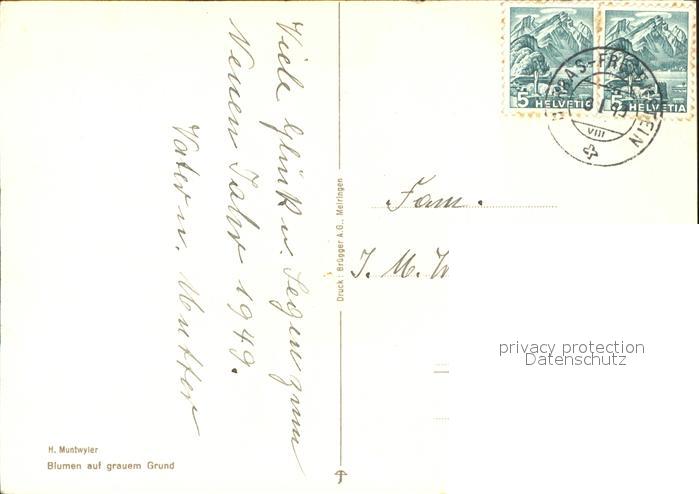 5 HELVETIA
5 HELVETIA
VIII
Viele Glück u. Segen zum
Neuen Jahr 1949.
Vater u. Mutter
Druck: Brügger A.G., Meiringen
Fam.
J. M.
privacy protection
Datenschutz
H. Muntwyler
Blumen auf grauem Grund